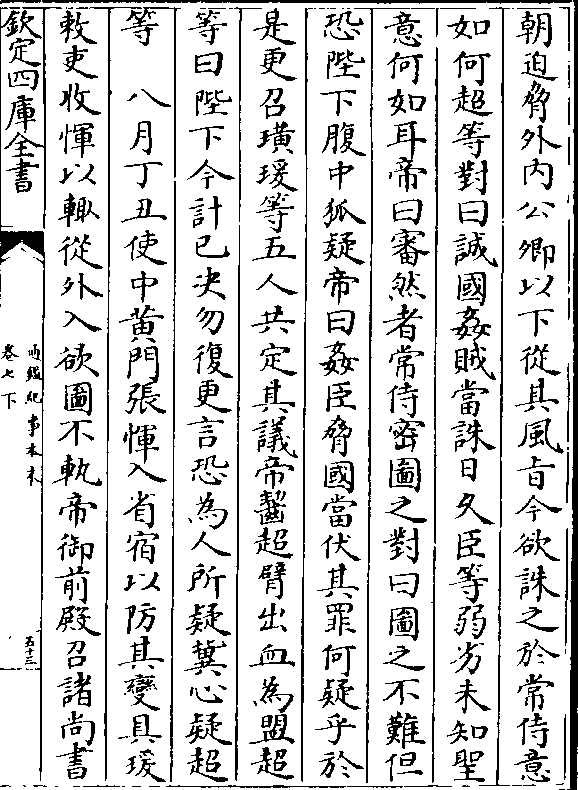 朝迫脅外内公卿以下從其風旨今欲誅之於常侍意
如何超等對曰誠國姦賊當誅日久臣等弱劣未知聖
意何如耳帝曰審然者常侍密圖之對曰圖之不難但
恐陛下腹中狐疑帝曰姦臣脅國當伏其罪何疑乎於
是更召璜瑗等五人共定其議帝齧超臂出血為盟超
等曰陛下今計已决勿復更言恐為人所疑冀心疑超
等　八月丁丑使中黄門張惲入省宿以防其變具瑗
敕吏收惲以輙從外入欲圖不軌帝御前殿召諸尚書
欽定四庫全書
通鑑紀事本末
卷七下
五十三